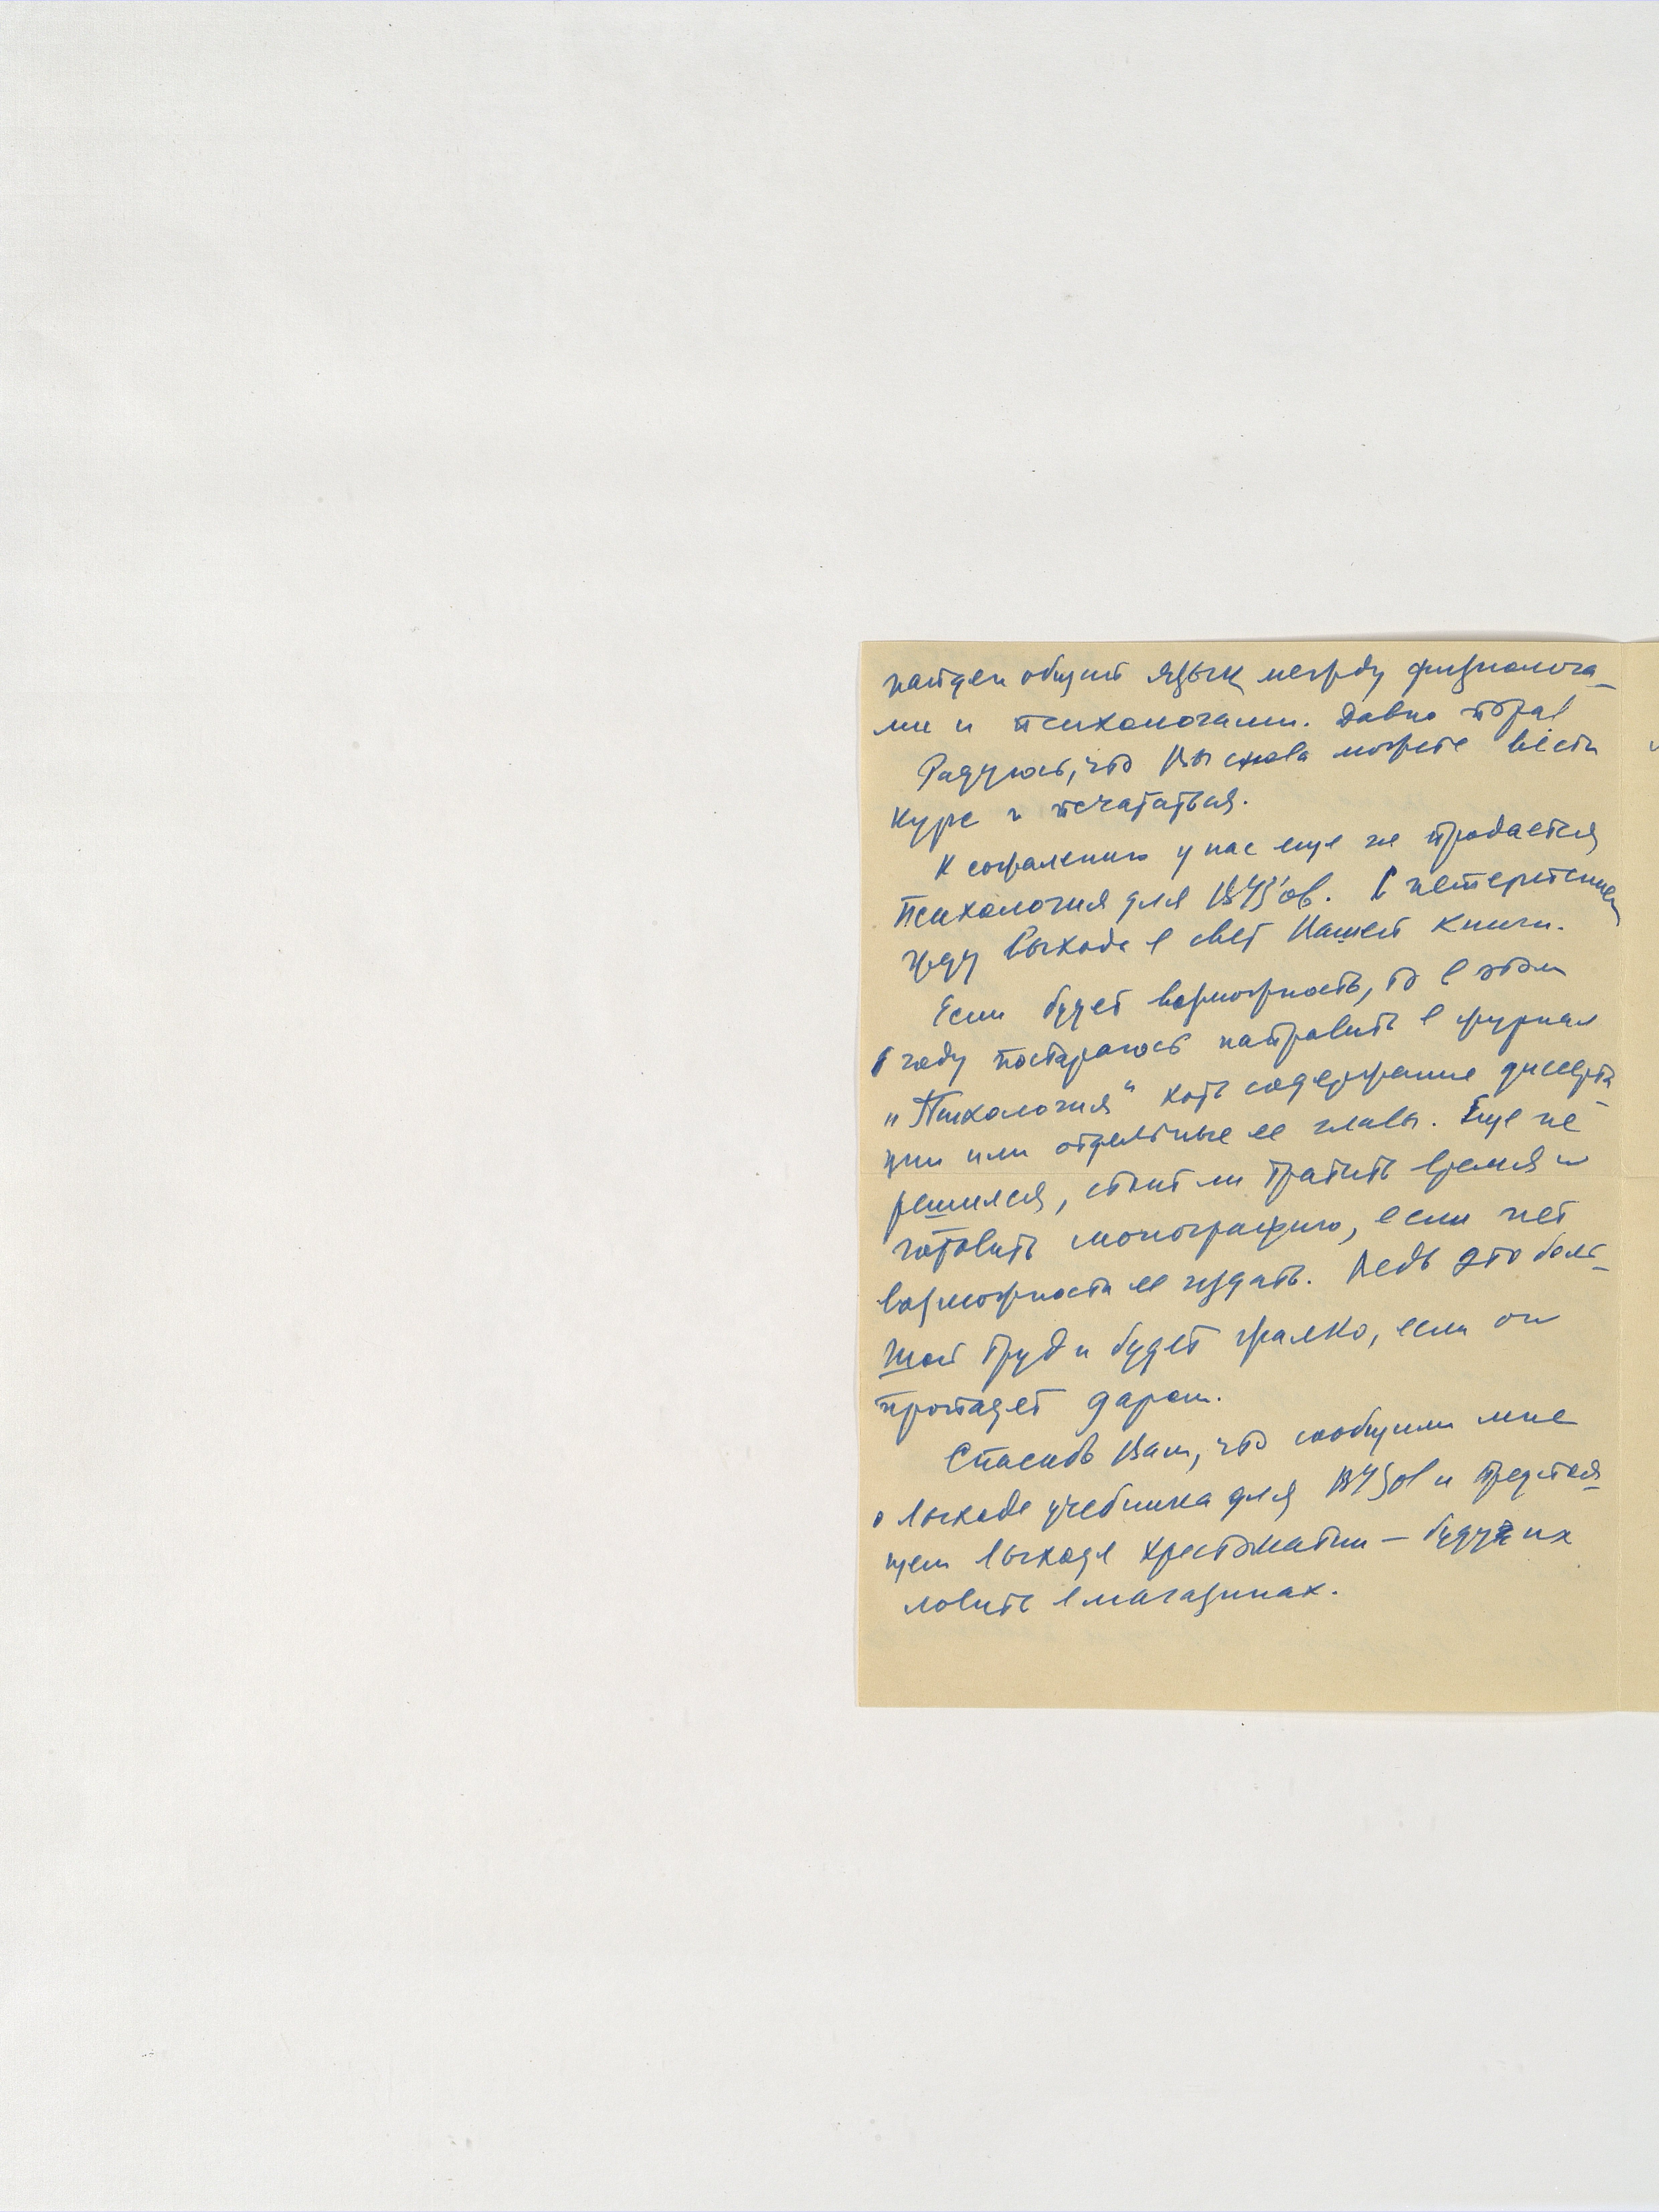 найден общий язык между физиолога-
ми и психологами. Давно пора!
Радуюсь, что Вы снова можете вести
курс и печататься.
К сожалению у нас еще не продается
Психология для ВУЗ'ов. С нетерпением
жду выхода в свет Вашей книги.
Если будет возможность, то в этом
году постараюсь направить в журнал
„Психология" хоть содержание диссерта-
ции или отдельные ее главы. Еще не
решился, стоит ли тратить время и
готовить монографию, если нет
возможности ее издать. Ведь это боль-
шой труд и будет жалко, если он
пропадет даром.
Спасибо Вам, что сообщили мне
о выходе учебника для ВУЗов и предстоя-
щем выходе хрестоматии – буду их
ловить в магазинах.